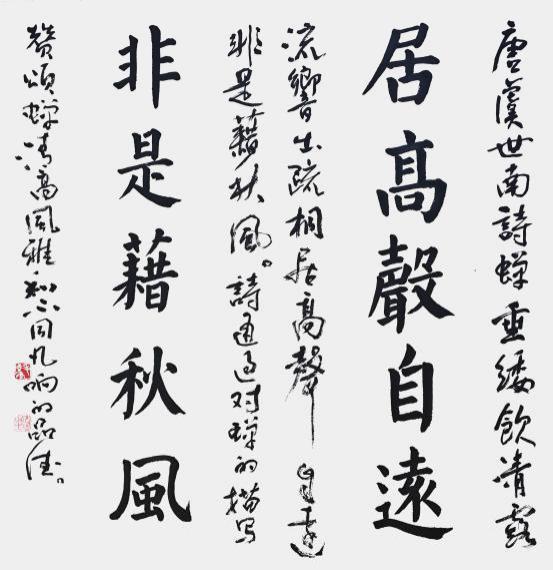 唐虞世南詩蝉垂緌飲清露
居高聲自遠
流響出疏桐居高聲自遠
非是藉秋風。詩通过对蝉的描写
非是藉秋風
赞頌蝉清高風雅和不同凡响的品德。